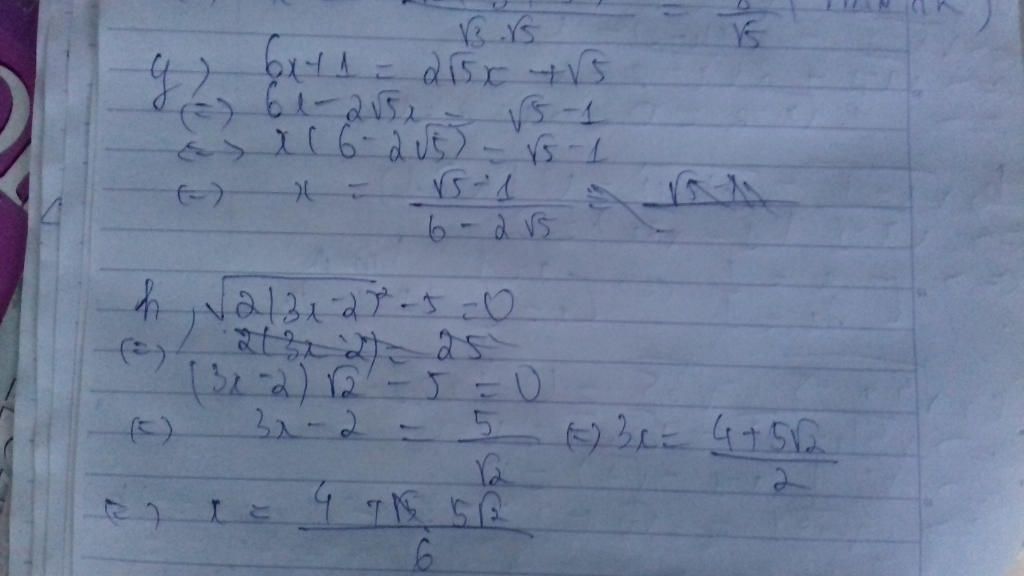 √3 . √5 = √5
g) 6x+1 = 2√5x + √5
(=) 6x - 2√5x = √5 - 1
<=> x(6 - 2√5) = √5 - 1
(=) x = (√5 - 1)/(6 - 2√5)
h, √2(3x-2)² - 5 = 0
(=) 2(3x-2) = 25
(3x-2)√2 - 5 = 0
(=) 3x - 2 = 5/√2 (=) 3x = (4+5√2)/2
(=) x = (4 + 5√2)/6